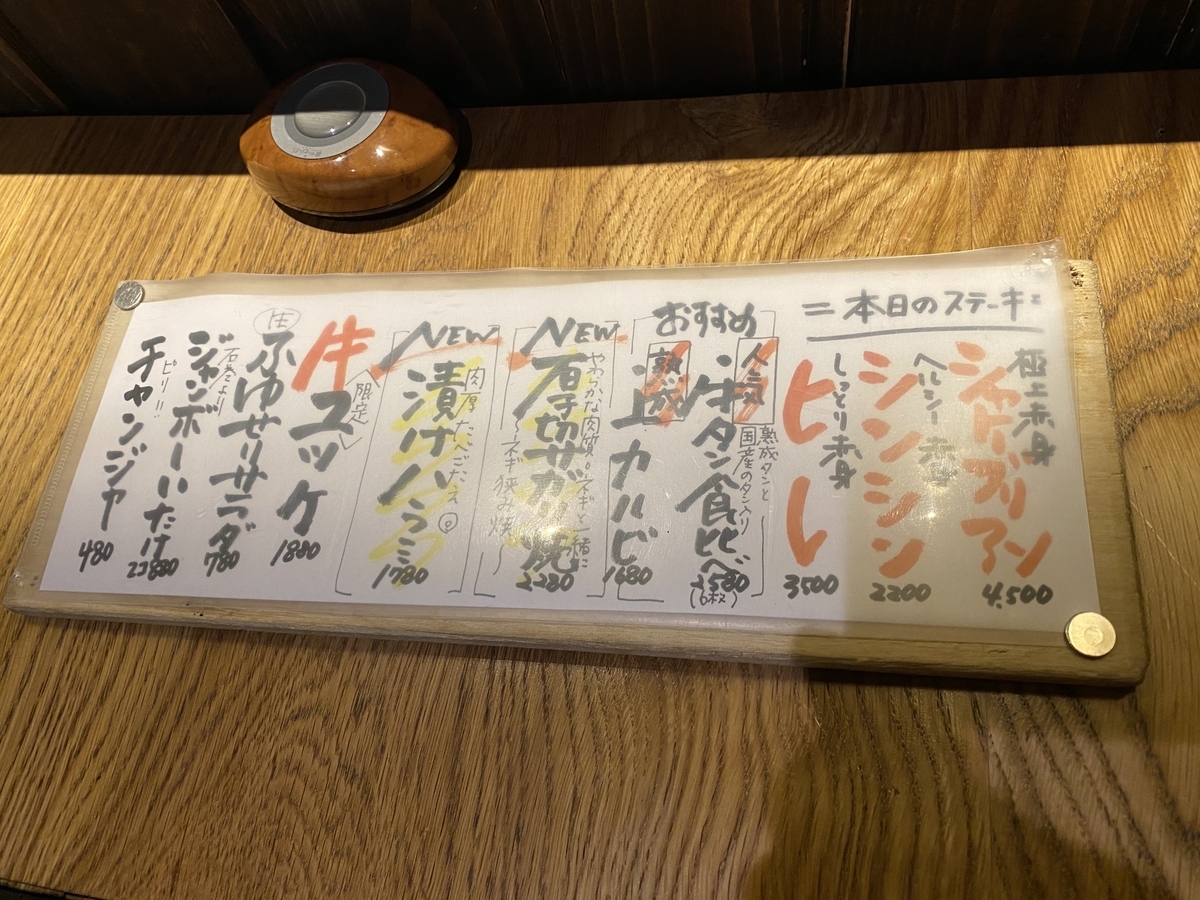 =本日のステーキ=
極上赤身
シャトーブリアン
4,500
ヘルシー赤身
シンシン
2200
しっとり赤身
ヒレ
3500
おすすめ
人気
熟成タンと
国産のタン入り
牛タン食比べ
2580
(6枚)
熟成
上カルビ
1680
NEW
やわらかな肉質。ネギと一緒に
石切ザガリ焼
2280
〜ネギ挟み焼〜
NEW
肉厚たべごたえ◎
漬けハラミ
1780
限定
牛ユッケ
1880
生
ふゆせりサラダ
780
石巻より
ジャンボしいたけ
880
ピリー!!
チャンジャ
480